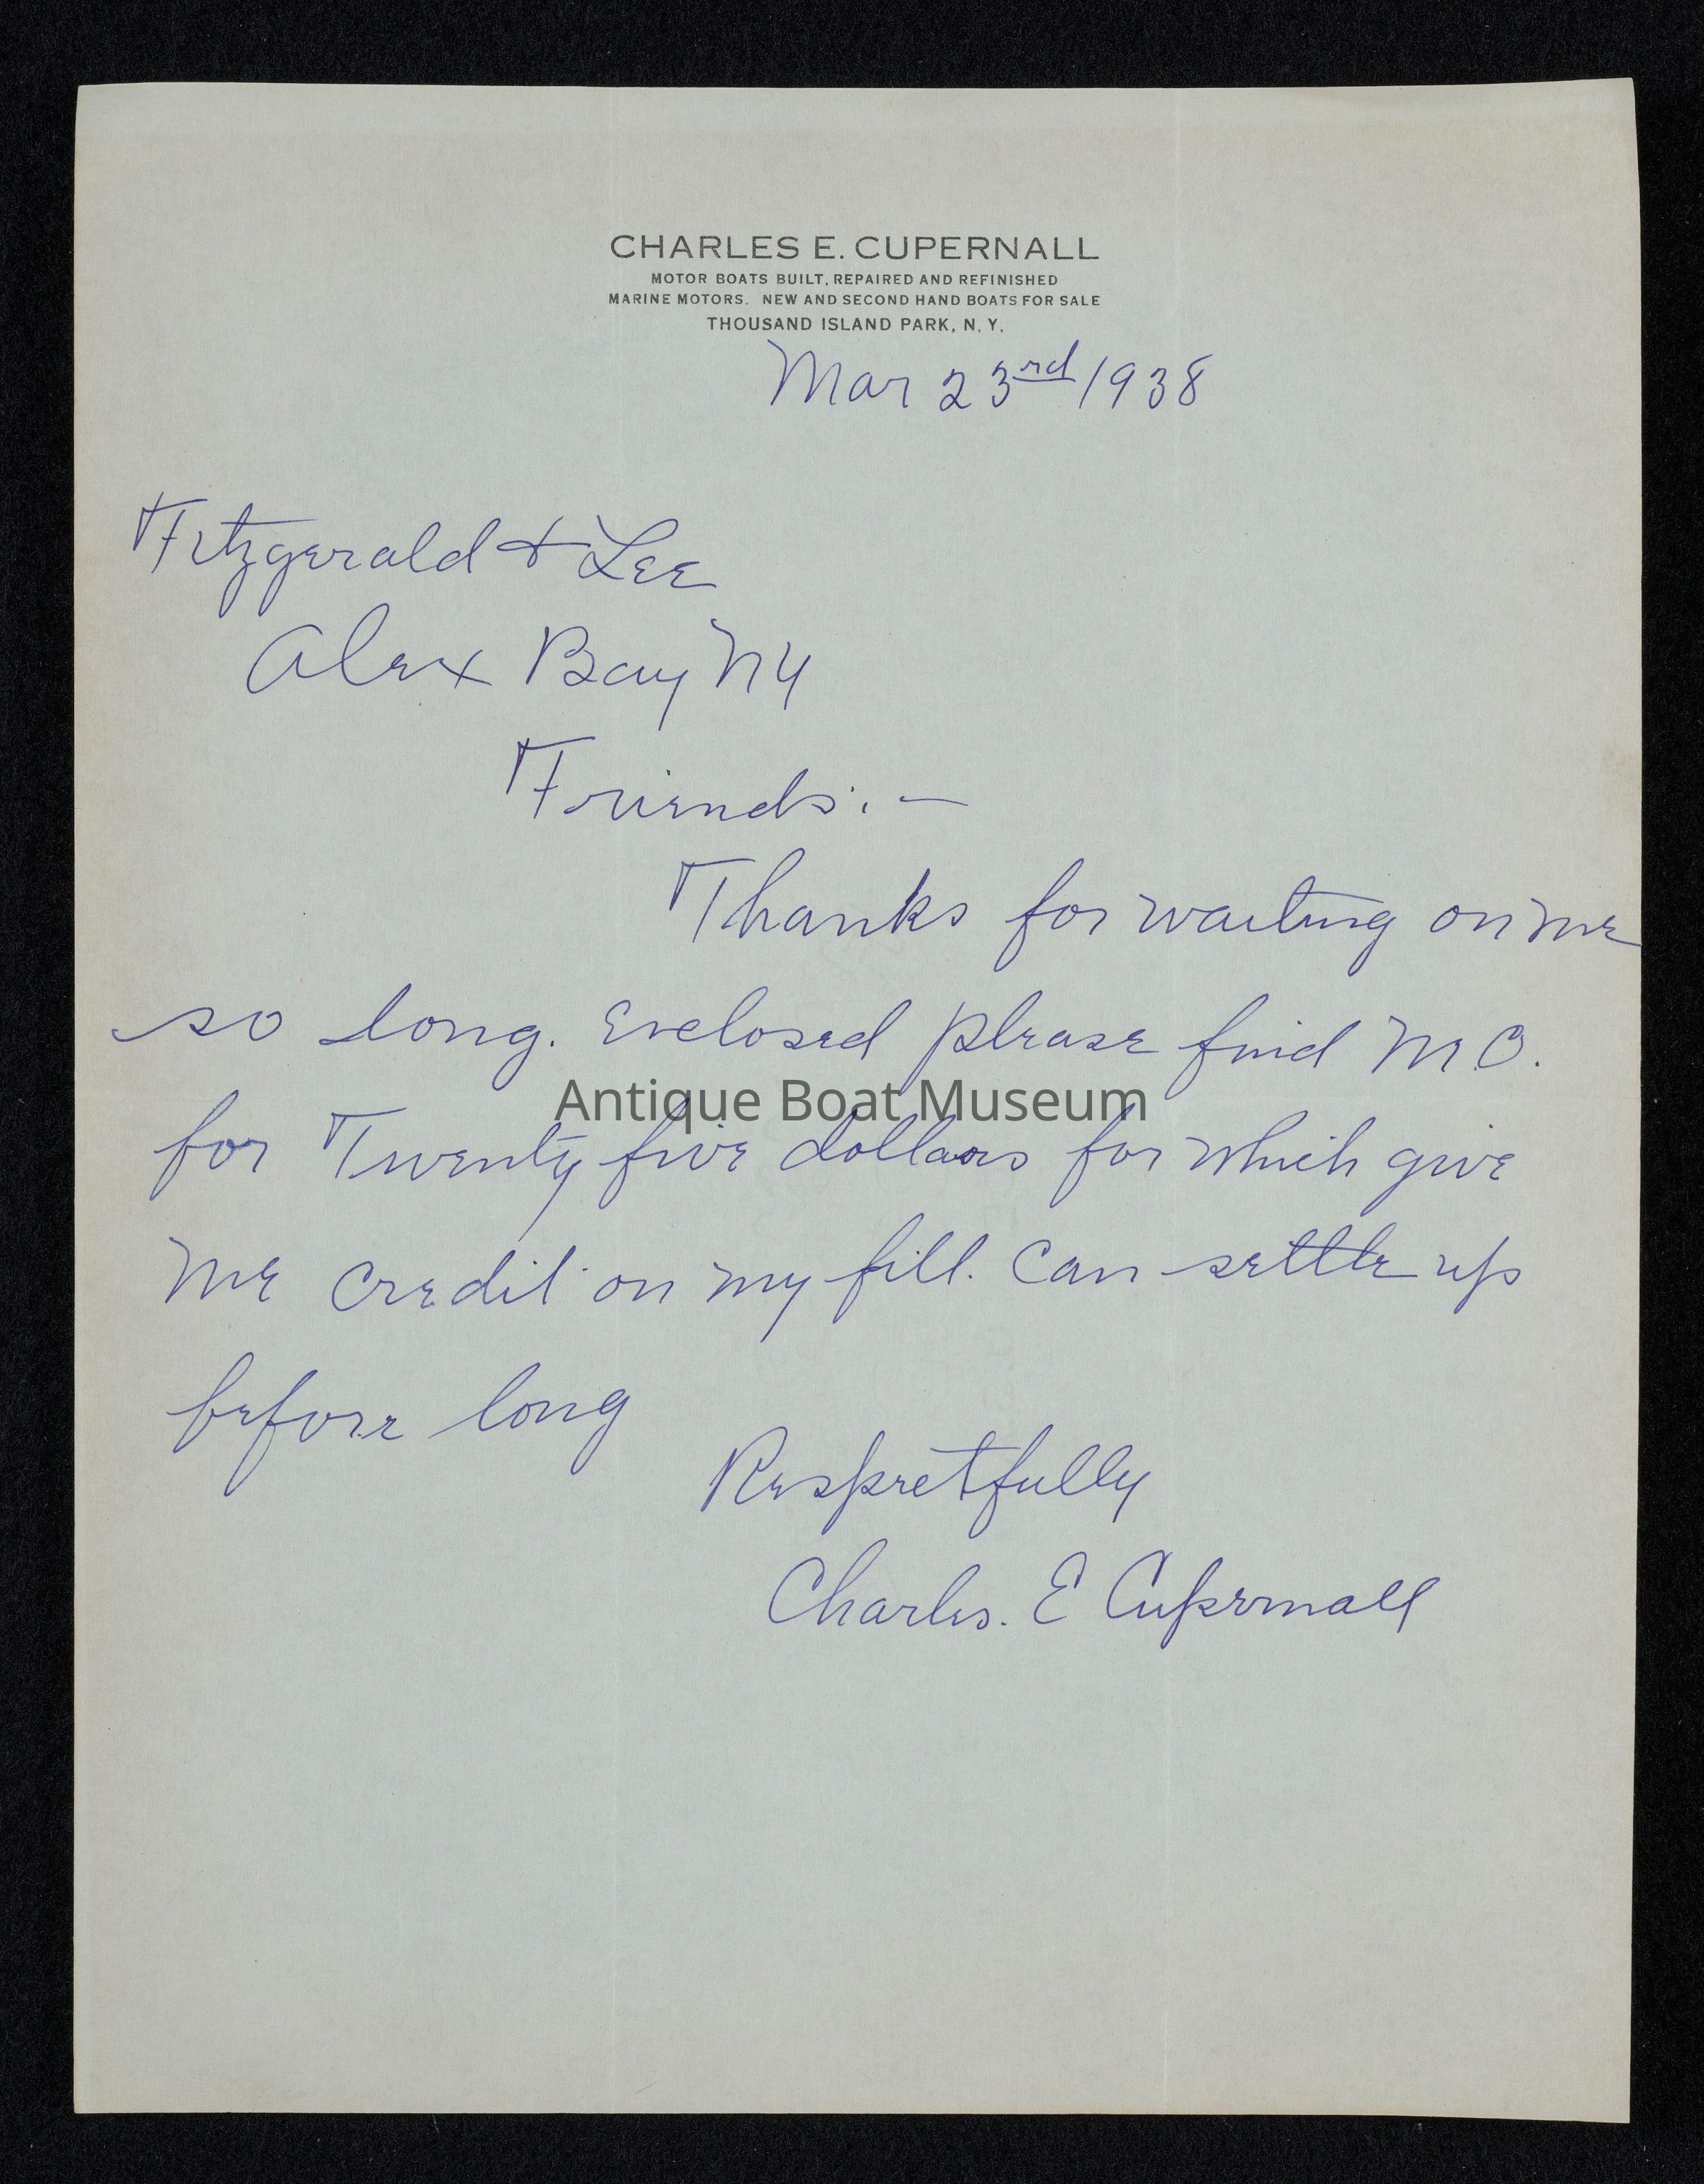 CHARLES E. CUPERNALL
MOTOR BOATS BUILT, REPAIRED AND REFINISHED
MARINE MOTORS. NEW AND SECOND HAND BOATS FOR SALE
THOUSAND ISLAND PARK, N. Y.
Mar 23rd 1938
Fitzgerald & Lee
Alex Bay NY
Friends:—
Thanks for waiting on me
so long. Enclosed please find M.O.
Antique Boat Museum
for Twenty five dollars for which give
me credit on my bill. Can settle up
before long
Respectfully
Charles. E Cupernall